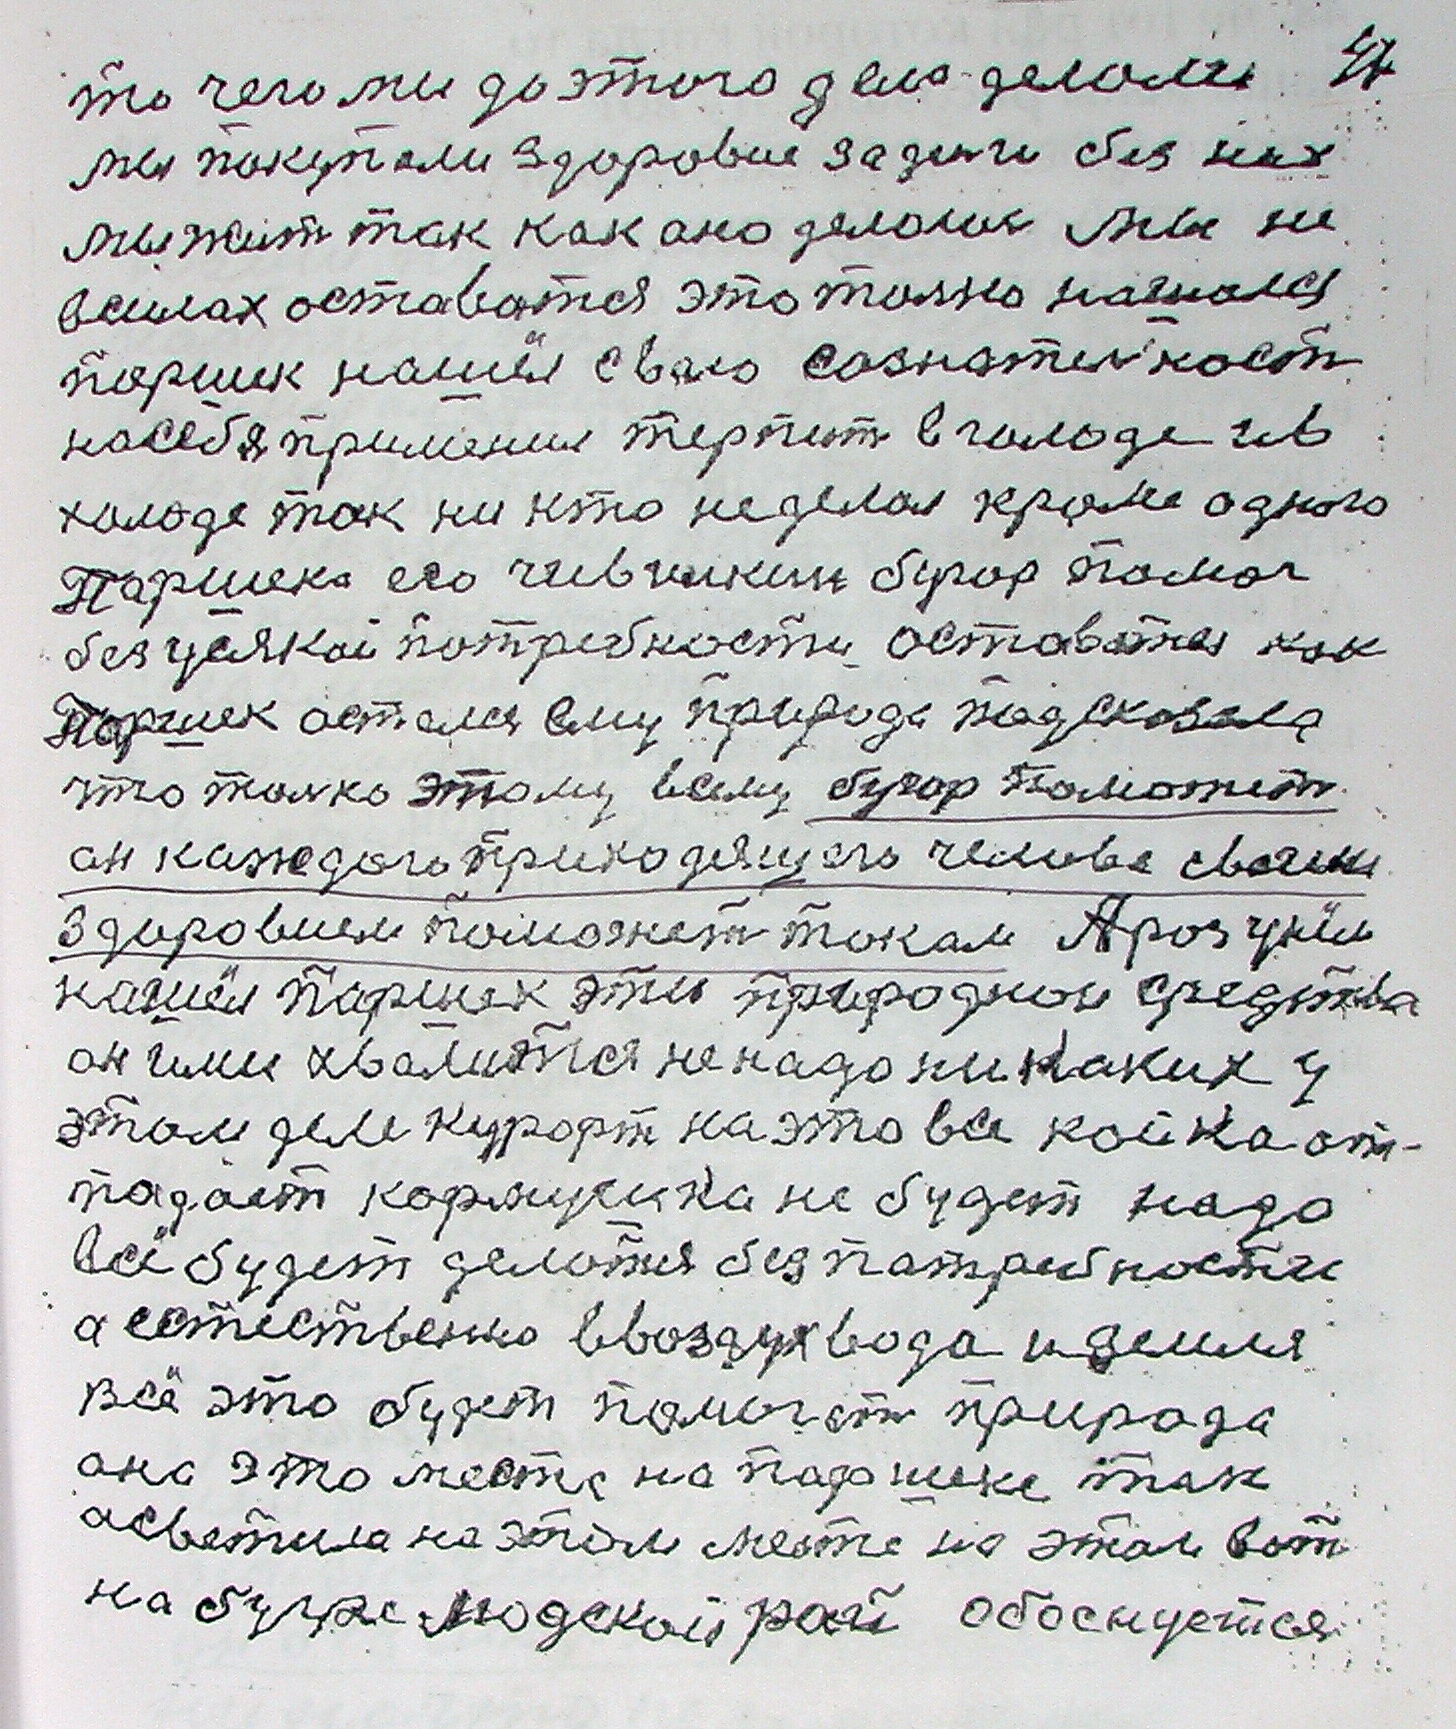 то чего ми до этого дела делоли
ми покупали здоровие за денги без них
ми жит так как оно делолос ми не
всилах оставатся это толко нашолся
паршек нашёл сваю сознателност
насебя применил терпит в голоде и в
холоде так ни кто неделал кроме одного
Паршека его чивилкин бугор помог
без усякой потребности оставатся как
Паршек остался ему природа подсказала
что толко этому всему бугор поможет
он каждого приходящего челове своим
здоровием поможет током А розумом
нашёл паршек эти природнои средства
он ими хвалится ненадо ни каких у
этом деле курорт на это все койка от-
падает кормушка не будет надо
всё будет делотся без патребности
а естественно в воздух вода и земля
всё это будет помогат природа
она это место на паршеке так
асветила на этом месте на этом вот
на бугре людской рай обоснуется